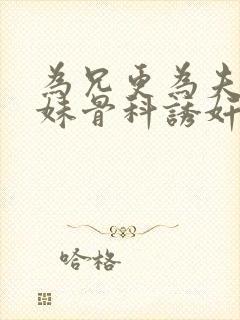 為兄更為夫
妹骨科誘奸
哈格